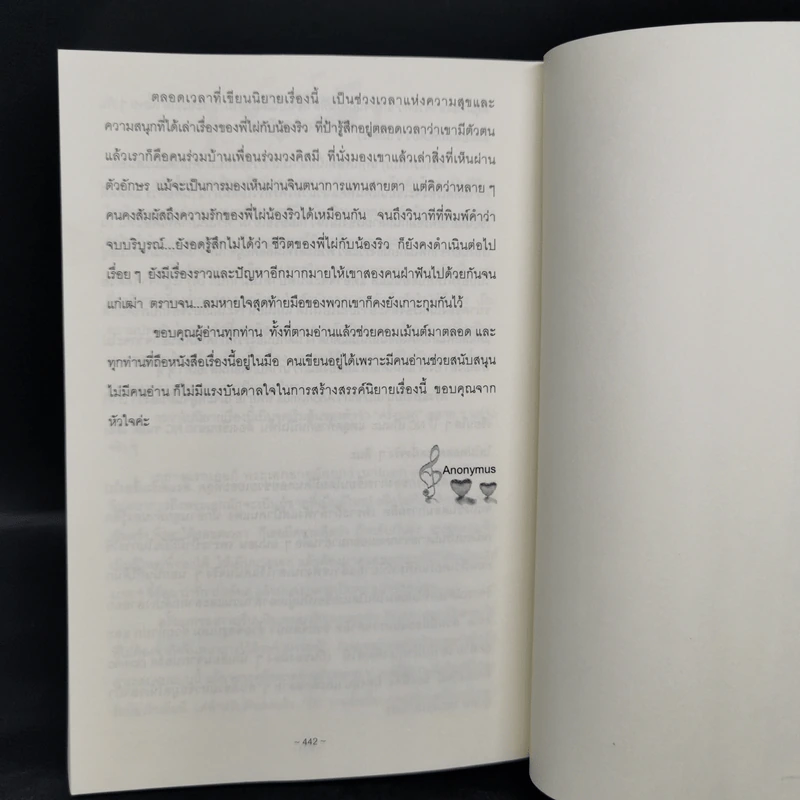 ตลอดเวลาที่เขียนนิยายเรื่องนี้ เป็นช่วงเวลาแห่งความสุขและ
ความสนุกที่ได้เล่าเรื่องของพี่ไผ่กับน้องริว ที่ป้ารู้สึกอยู่ตลอดเวลาว่าเขามีตัวตน
แล้วเราก็คือคนร่วมบ้านเพื่อนร่วมวงคิสมี ที่นั่งมองเขาแล้วเล่าสิ่งที่เห็นผ่าน
ตัวอักษร แม้จะเป็นการมองเห็นผ่านจินตนาการแทนสายตา แต่คิดว่าหลาย ๆ
คนคงสัมผัสถึงความรักของพี่ไผ่น้องริวได้เหมือนกัน จนถึงวินาทีที่พิมพ์คำว่า
จบบริบูรณ์...ยังอดรู้สึกไม่ได้ว่า ชีวิตของพี่ไผ่กับน้องริว ก็ยังคงดำเนินต่อไป
เรื่อย ๆ ยังมีเรื่องราวและปัญหาอีกมากมายให้เขาสองคนฝ่าฟันไปด้วยกันจน
แก่เฒ่า ตราบจน...ลมหายใจสุดท้ายมือของพวกเขาก็คงยังเกาะกุมกันไว้
ขอบคุณผู้อ่านทุกท่าน ทั้งที่ตามอ่านแล้วช่วยคอมเม้นต์มาตลอด และ
ทุกท่านที่ถือหนังสือเรื่องนี้อยู่ในมือ คนเขียนอยู่ได้เพราะมีคนอ่านช่วยสนับสนุน
ไม่มีคนอ่าน ก็ไม่มีแรงบันดาลใจในการสร้างสรรค์นิยายเรื่องนี้ ขอบคุณจาก
หัวใจค่ะ
Anonymus
– 442 –